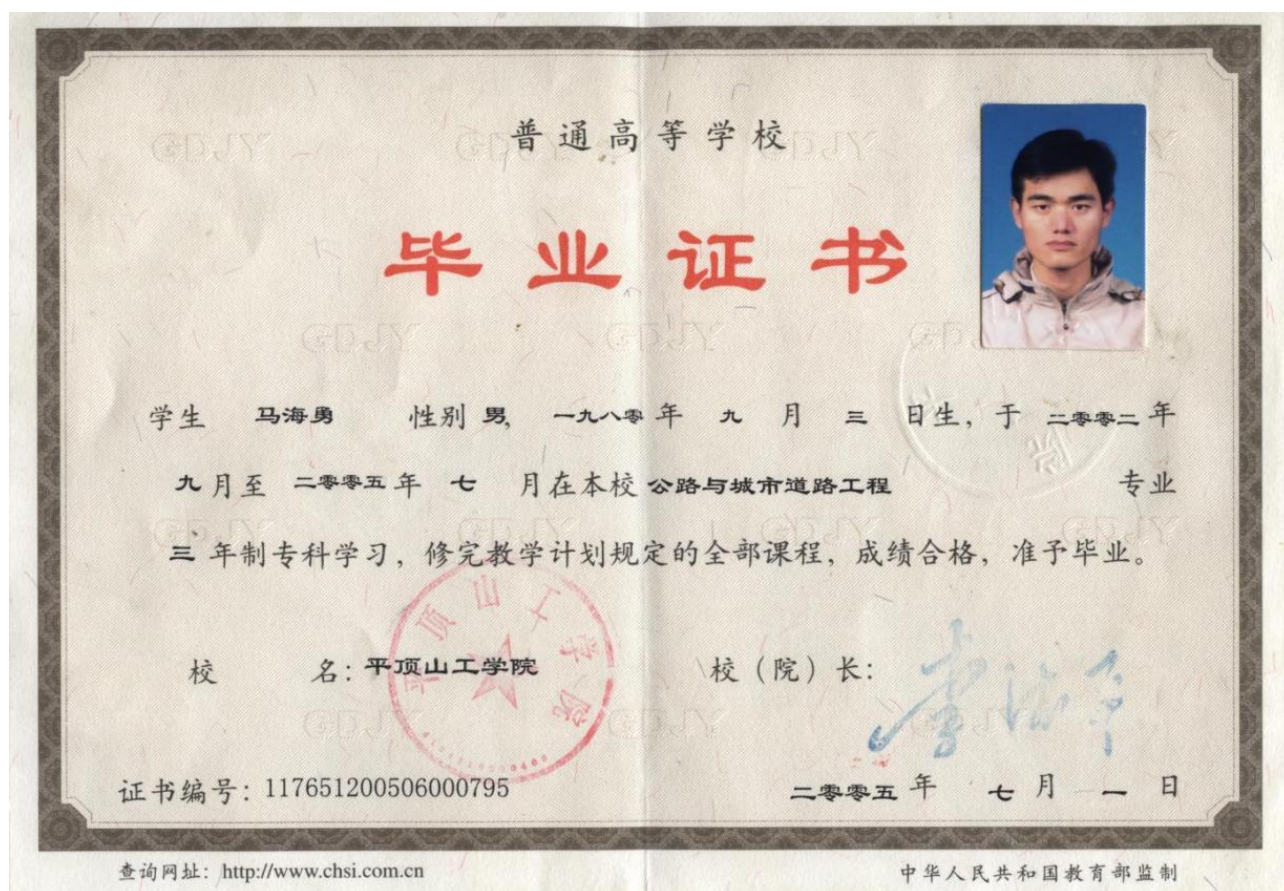 普通高等学校
毕业证书
学生 马海勇 性别 男, 一九八零 年 九 月 三 日生, 于 二零零二 年
九 月至 二零零五 年 七 月在本校 公路与城市道路工程 专业
三 年制专科学习, 修完教学计划规定的全部课程, 成绩合格, 准予毕业。
校 名: 平顶山工学院 校（院）长:
平顶山工学院
证书编号: 117651200506000795 二零零五 年 七 月 一 日
查询网址: http://www.chsi.com.cn 中华人民共和国教育部监制